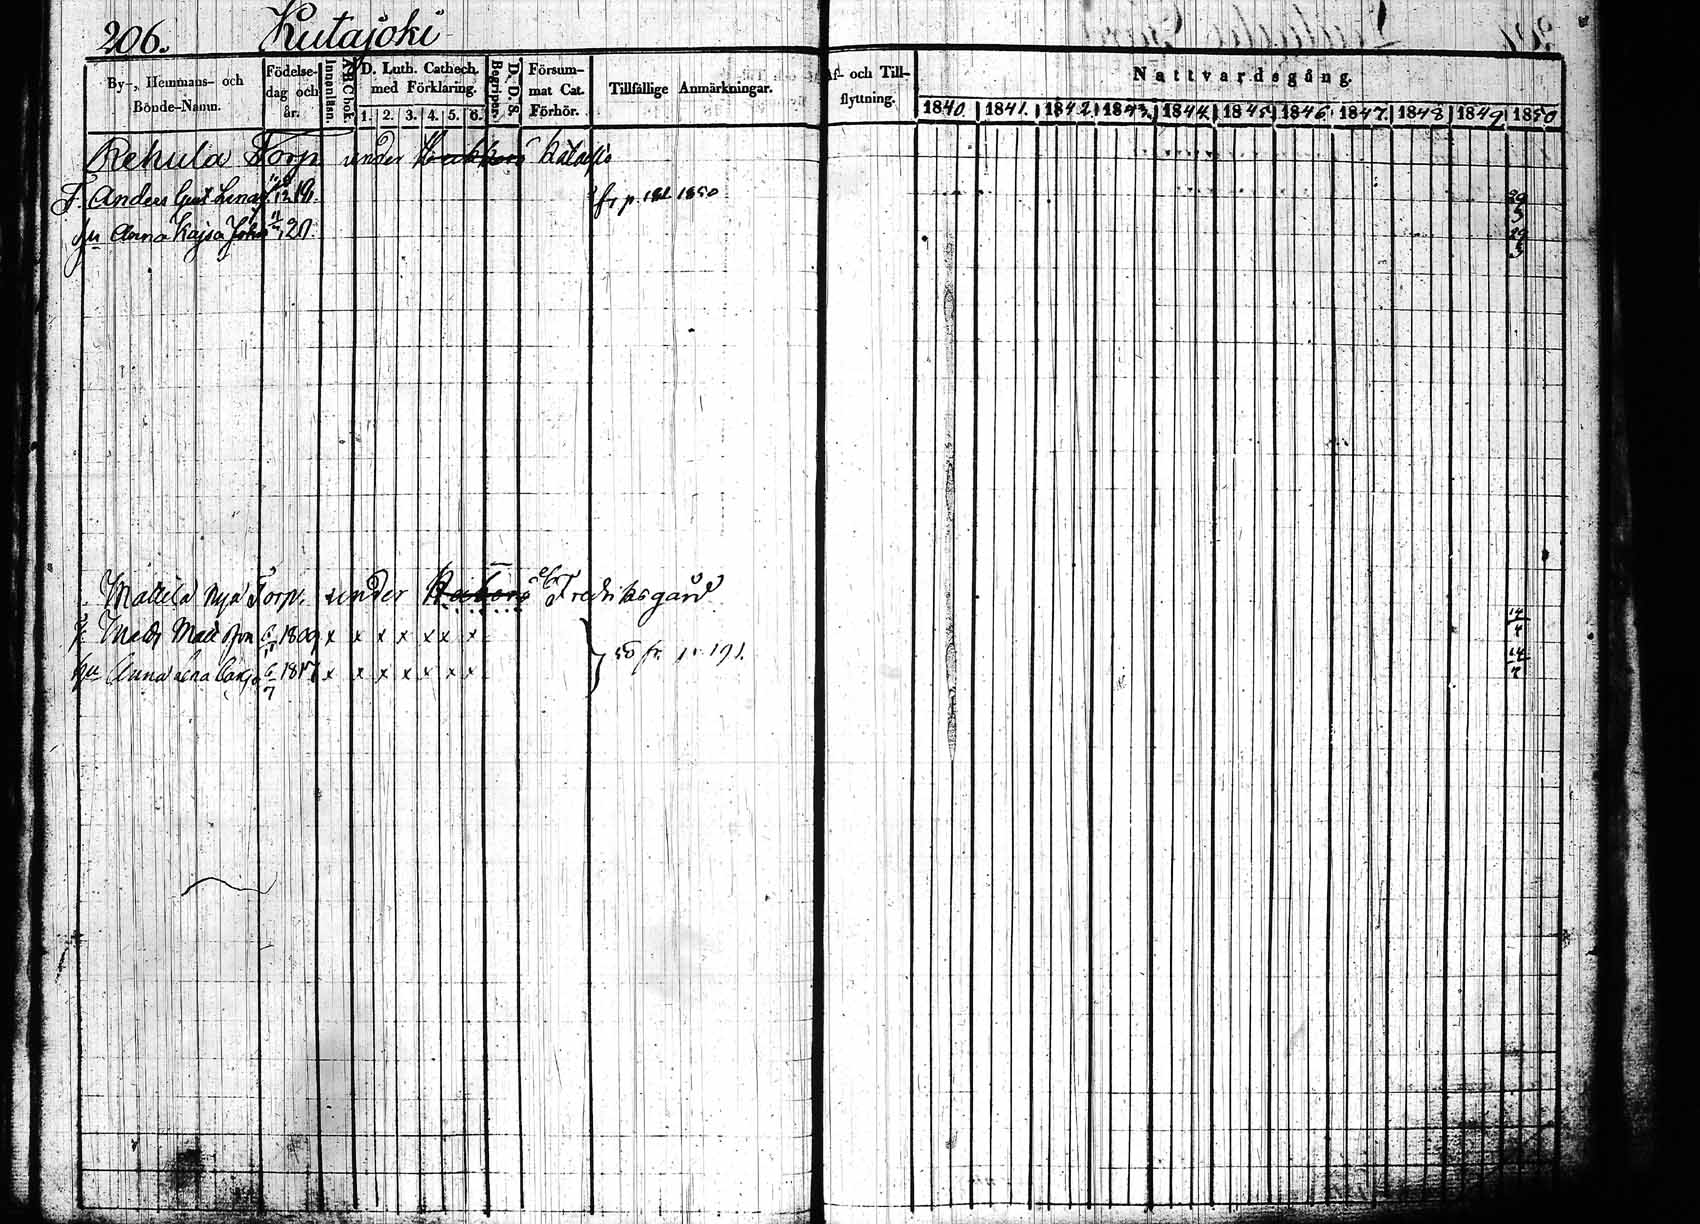 206. Kutajoki
By-, Hemmans- och Bonde-Namn.
Födelse-dag och år.
Innenläsn.
ABC bok
D. Luth. Cathech. med Förklaring.
1. 2. 3. 4. 5. 6.
Begripet.
D. D. S.
Försum-mat Cat. Förhör.
Tillfällige Anmärkningar.
Af- och Till-flyttning.
Nattvardsgång.
1840. 1841. 1842. 1843. 1844. 1845. 1846. 1847. 1848. 1849. 1850
Rekula Torp under
T. Anders Gust fr p. 1850 29/5
hu Anna Kajsa 29/5
Mattila nya Torp. under Fredriksgård
T. Matts Matt son 1809 x x x x x x x 14/4
50 fr. p. 191.
hu Anna Lena 6/7 x x x x x x x 14/4